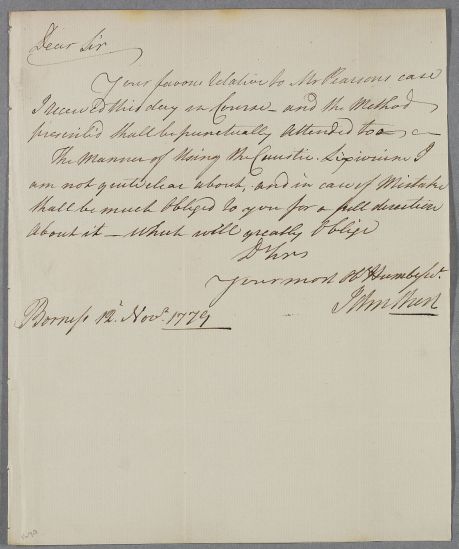 Dear Sir
Your favour relative to Mr Pearsons case
I received this day in Course – and the Method
prescrib'd shall be punctually attended to –
The Manner of Using the Caustic Lixivium I
am not quite clear about, and in case of Mistake
shall be much Obliged to you for a full direction
about it – which will greatly Oblige
Dr Sir
Your most Obt Humble Sert
John
Borness 12 Novr. 1779